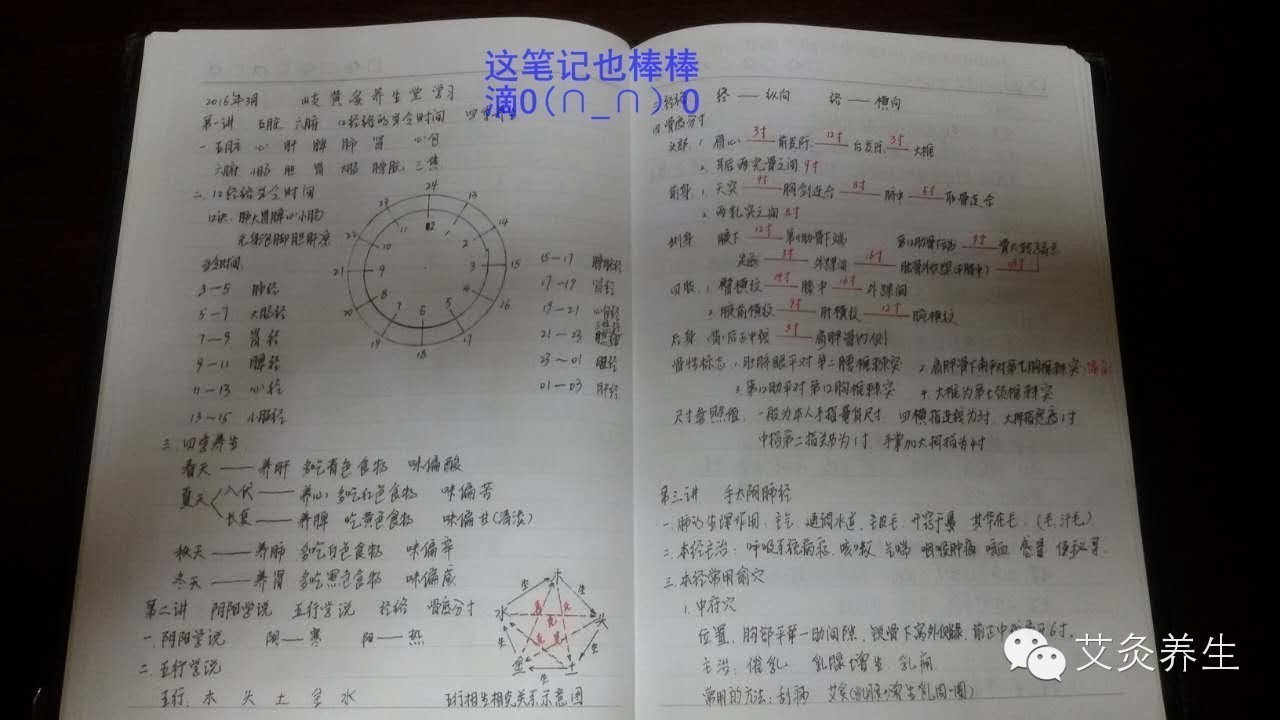 这笔记也棒棒
滴0(∩_∩)0
2016年3月 岐黄安养生堂学习
第一讲 五脏 六腑 12经络的安令时间 四季养生
一 五脏 心 肝 脾 肺 肾 心包
六腑 小肠 胆 胃 大肠 膀胱 三焦
二. 12经络当令时间
口诀: 肺大胃脾心小肠
当令时间:
3—5 肺经
5—7 大肠经
7—9 胃经
9—11 脾经
11—13 心经
13~15 小肠经
24
23 13
22 14
21 15
20 16
19 17
18
12
11 1
10 2
9 3
8 4
7 5
6
15—17 膀胱经
17—19 肾经
19—21 心包经
21—23 三焦经
23~01 胆经
01—03 肝经
三. 四季养生
春天 —— 养肝 多吃青色食物 味偏酸
夏天 入伏 —— 养心 多吃红色食物 味偏苦
长夏 —— 养脾 吃黄色食物 味偏甘(清淡)
秋天 —— 养肺 多吃白色食物 味偏辛
冬天 —— 养肾 多吃黑色食物 味偏咸
第二讲 阴阳学说 五行学说 经络 骨度分寸
一. 阴阳学说 阴—寒 阳—热
二 五行学说
五行: 木 火 土 金 水 五行相生相克关系示意图
木
水 火
金 土
生 生 生 生 生
克 克 克 克 克
三 经络 经 —— 纵向 络 — 横向
四 骨度分寸
头部: 1. 眉心 3寸 前发际 12寸 后发际 3寸 大椎
2. 耳后两完骨之间 9寸
前身: 1. 天突 9寸 胸剑连合 8寸 脐中 5寸 耻骨连合
2. 两乳突之间 8寸
侧身 腋下 12寸 第11肋骨下端 第11肋骨下端 9寸
足底 3寸 外踝尖 16寸
四肢: 1. 臀横纹 14寸 膝中 16寸 外踝尖
2. 腋前横纹 9寸 肘横纹 12寸 腕横纹
后身 背后正中线 3寸 肩胛骨内侧
骨性标志: 1. 肚脐眼平对第二腰椎棘突 2. 肩胛骨下角平对第七胸椎棘突
3. 第12肋平对第12胸椎棘突 4. 大椎为第七颈椎棘突
尺寸参照值: 一般为本人手指量身尺寸. 四横指连线为3寸. 大拇指宽为1寸
中指第二指关节为1寸.
第三讲 手太阴肺经
一. 肺的生理作用: 主气 通调水道. 主皮毛. 开窍于鼻 其华在毛. (毛: 汗毛)
二. 本经主治: 呼吸系统病症. 咳嗽 气喘 咽喉肿痛 咳血 感冒 便秘等.
三. 本经常用俞穴
1. 中府穴
位置: 胸部平第一肋间隙. 锁骨下窝外侧缘. 前正中线旁开6寸.
主治: 催乳 乳腺增生 乳痛
常用的方法: 刮痧 艾灸
艾灸养生